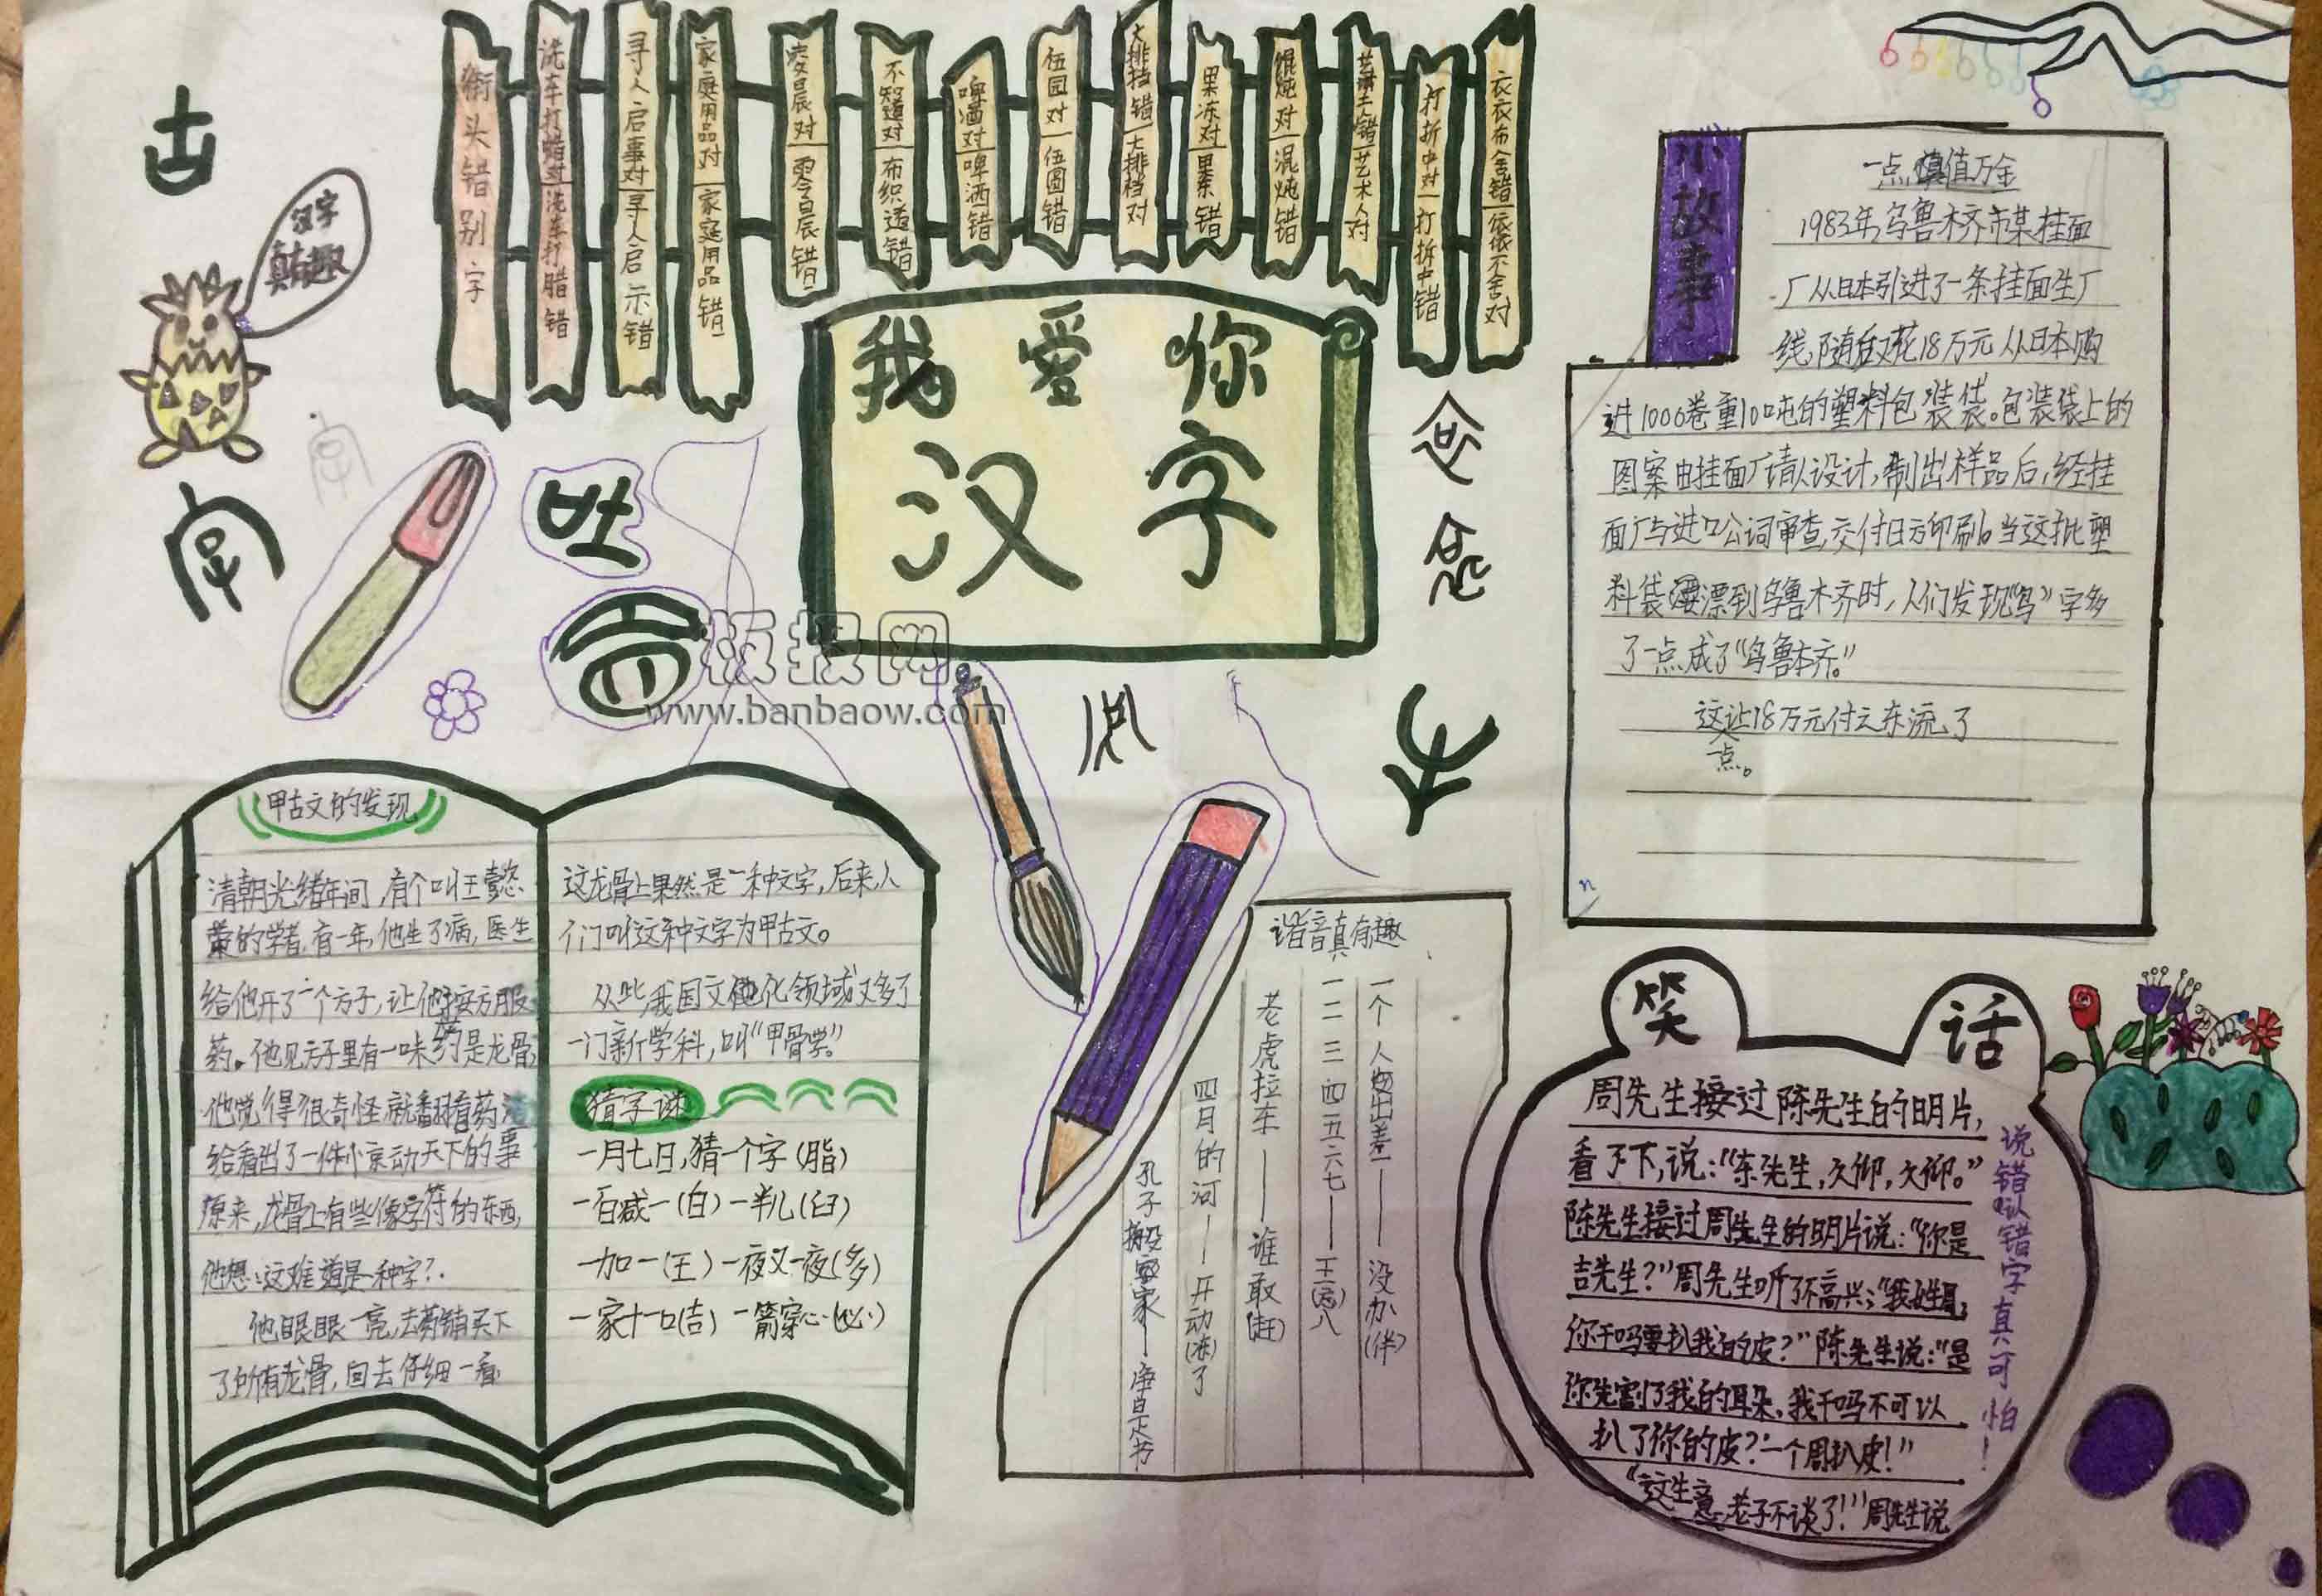 古
汉字
真有趣
字
街头错别字
洗车打蜡对洗车打腊错
寻人启事对寻人启示错
家庭用品对家庭用品错
凌晨对零晨错
不知道对布织道错
啤酒对啤洒错
伍园对伍圆错
大排挡错大排档对
果冻对果东错
馄炖对混炖错
艺术人对
打折中对打拆中错
衣衣布舍错依依不舍对
我爱你
汉字
吐
板报网
www.banbaow.com
小故事
一点值万金
1983年,乌鲁木齐市某挂面
厂从日本引进了一条挂面生厂
线,随后又花18万元从日本购
进1000卷重10吨的塑料包装袋。包装袋上的
图案由挂面厂请人设计,制出样品后,经挂
面厂与进口公词审查,交付日方印刷。当这批塑
料袋漂到乌鲁木齐时,人们发现“乌”字多
了一点成了“鸟鲁本齐。”
这让18万元付之东流了
一点。
甲古文的发现
清朝光绪年间,有个叫王懿
荣的学者,有一年,他生了病,医生
给他开了一个方子,让他按方服
药。他见方子里有一味药是龙骨,
他觉得很奇怪就翻看药渣
给看出了一件惊动天下的事
原来,龙骨上有些像字符的东西,
他想:这难道是一种字?.
他眼眼一亮,去药铺买下
了所有龙骨,回去仔细一看,
这龙骨上果然是一种文字,后来,人
们叫这种文字为甲古文。
从此,我国文化领域又多了
一门新学科,叫“甲骨学”
猜字谜
一月七日,猜一个字(脂)
一百减一(白)一半儿(臼)
一加一(王)一夜又一夜(多)
一家十一口(吉)一箭穿心(必)
谐音真有趣
一个人出差——没办(伴)
一二三四五六七——王(忘)八
老虎拉车——谁敢(赶)
四月的河——开动(冻)了
孔子搬家——净是书
笑话
周先生接过陈先生的明片,
看了下,说:“东先生,久仰,久仰。”
陈先生接过周先生的明片说:“你是
吉先生?”周先生听了不高兴;“我姓周,
你干吗要扒我的皮?”陈先生说:“是
你先割了我的耳朵,我干吗不可以
扒了你的皮?一个周扒皮!”
“这生意老子不谈了!”周先生说
说错认错字真可怕!